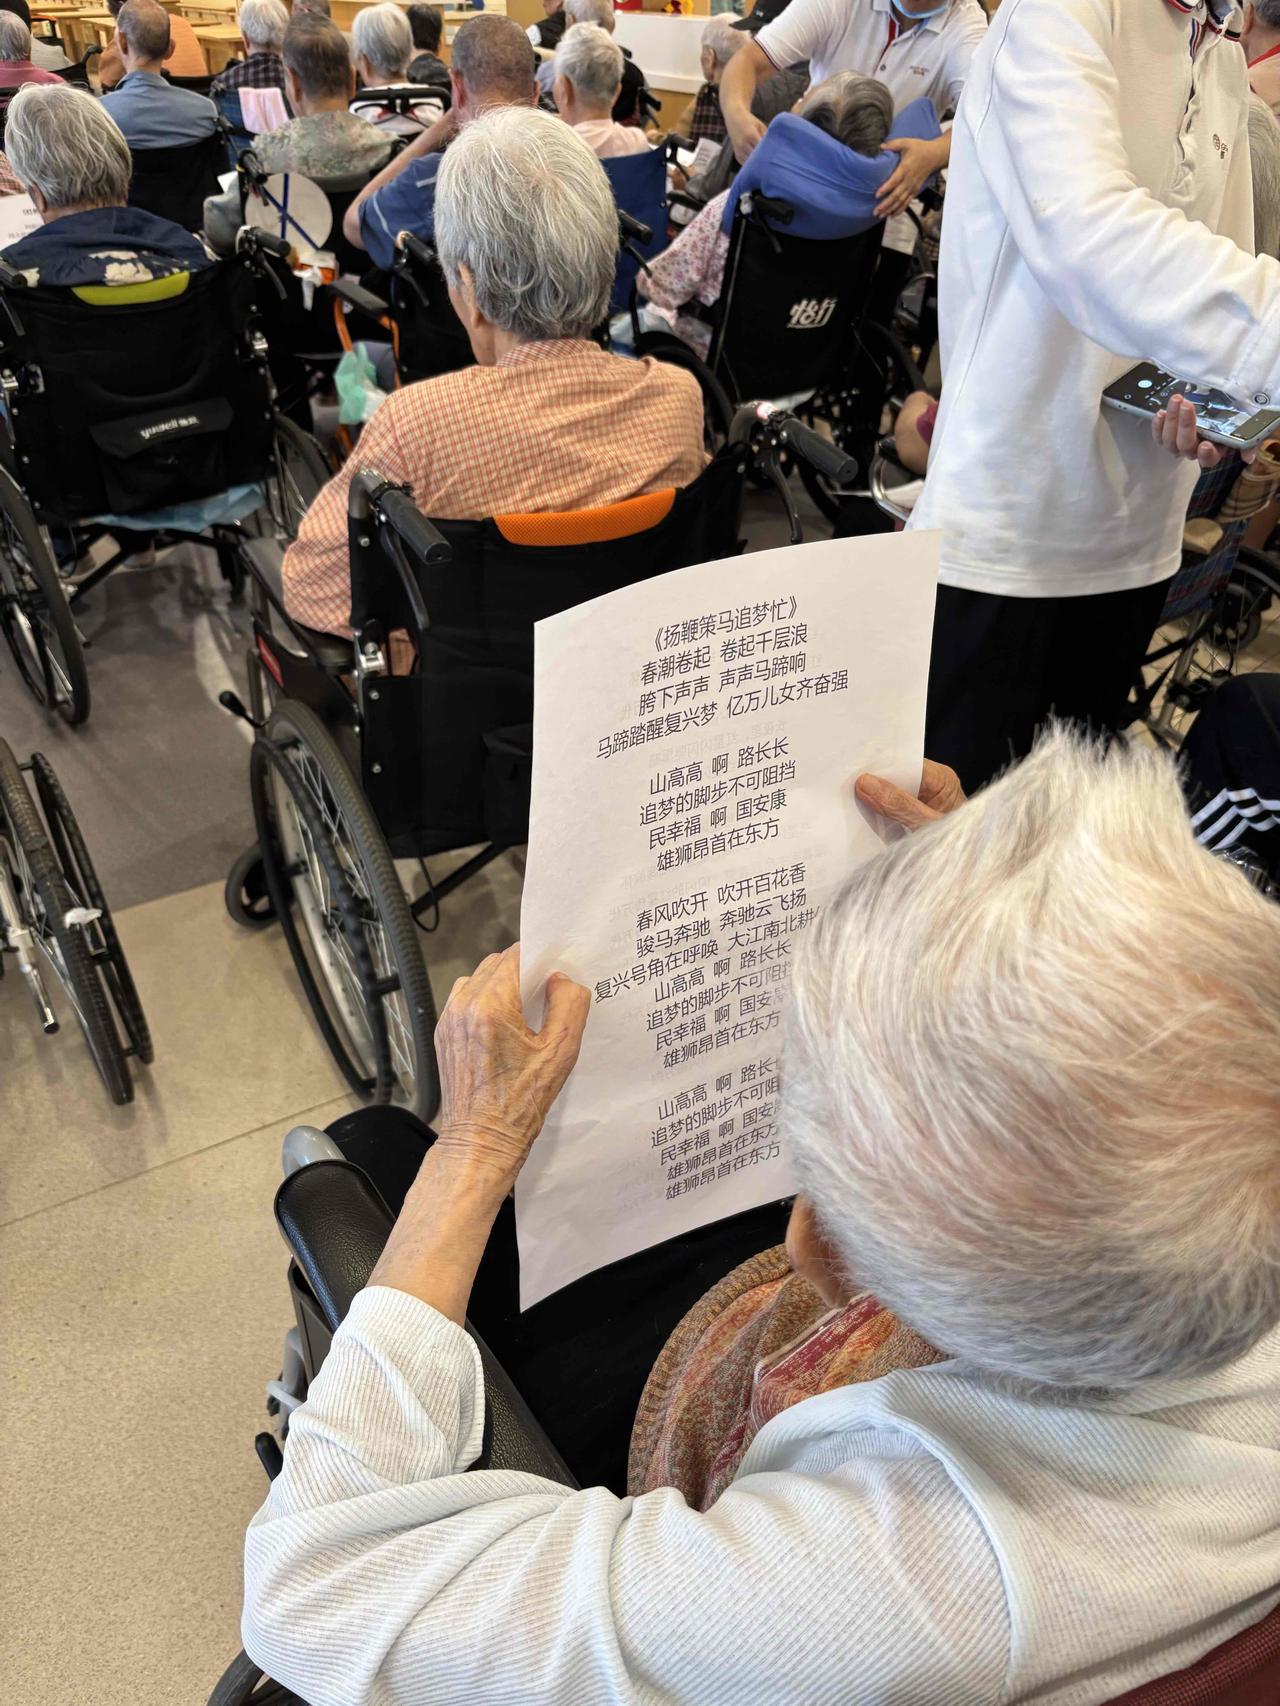 《扬鞭策马追梦忙》
春潮卷起 卷起千层浪
胯下声声 声声马蹄响
马蹄踏醒复兴梦 亿万儿女齐奋强
山高高 啊 路长长
追梦的脚步不可阻挡
民幸福 啊 国安康
雄狮昂首在东方
春风吹开 吹开百花香
骏马奔驰 奔驰云飞扬
复兴号角在呼唤 大江南北耕
山高高 啊 路长长
追梦的脚步不可阻
民幸福 啊 国安
雄狮昂首在东方
山高高 啊 路长
追梦的脚步不可阻
民幸福 啊 国安
雄狮昂首在东方
雄狮昂首在东方
怡行
yuwell 鱼跃